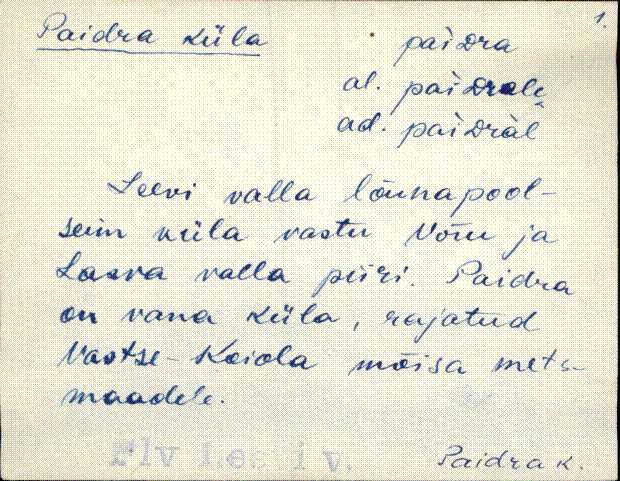 1.
Paidra küla
pàiᴅra
al. pàiᴅrale
ad. pàiᴅràl
Leevi valla lõunapool-
seim küla vastu Võru ja
Lasva valla piiri. Paidra
on vana küla, rajatud
Vastse-Koiola mõisa mets-
maadele.
Plv Leevi v.
Paidra k.